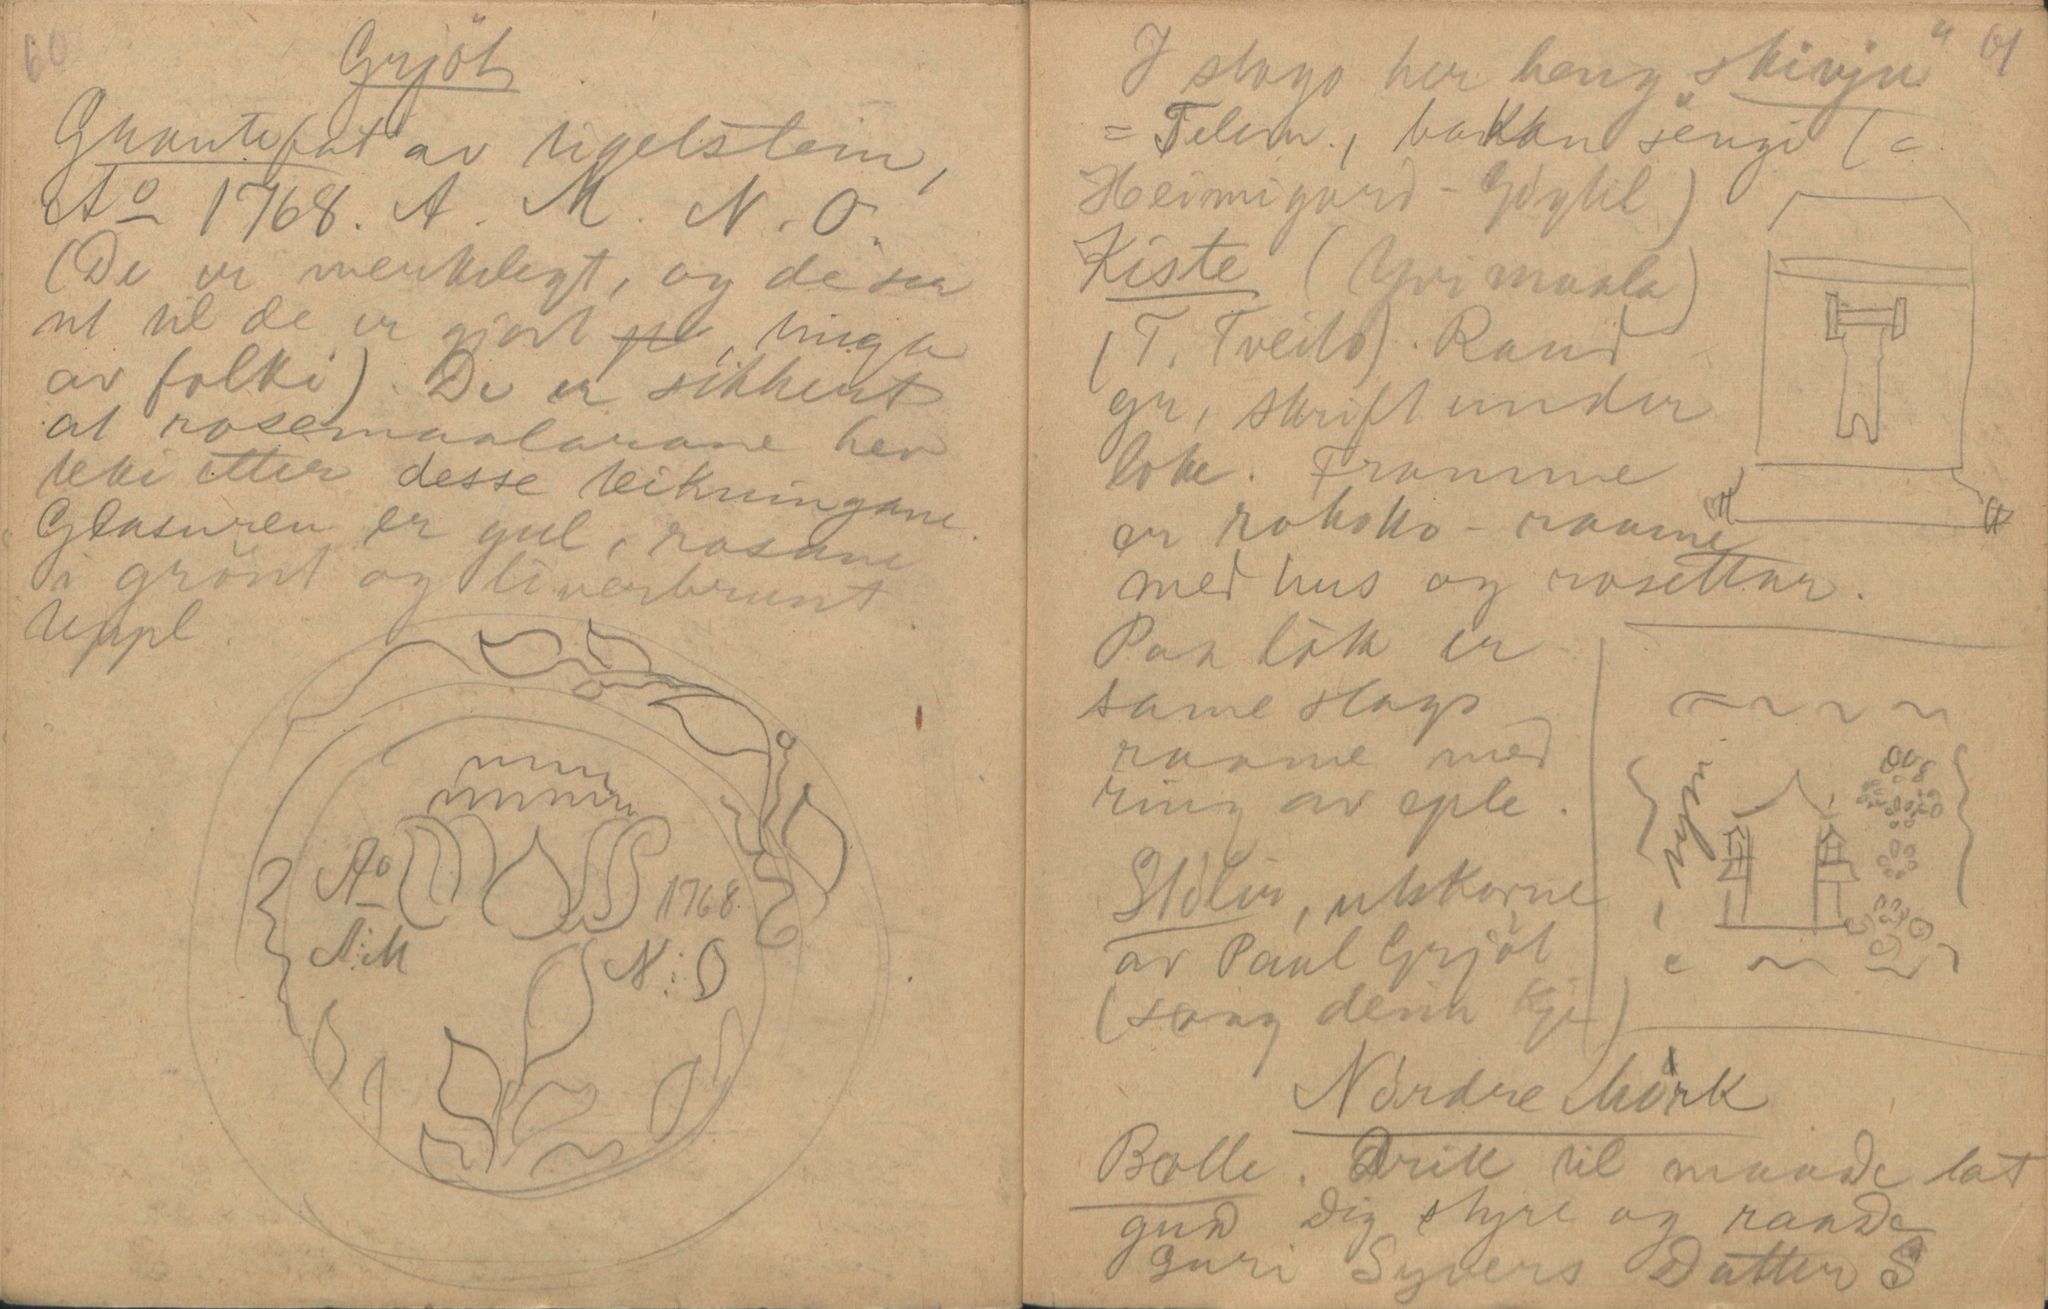 60
Grjöt
Grautefat av tigelstein,
Ao 1768. A. M. N. O.
(De er merkelegt, og de ser
ut til de er gjort, inga
av folki). De er sikkert
at rosemaalarane hev
teki etter desse teikningane.
Glasuren er gul, rosane
i grönt og liverbrunt
Ao
1768.
A: M
N: O
61
I stogo her heng "skivju"
= Telem., bakkan sengi (=
Heimigard -
Kiste (Yvimaala)
(T. Tveito). Raud
gr, skrift under
loke. Framme
er rokoko-raame
med hus og rosettar.
Paa lok er
same slags
raame med
ring av eple.
Stolir, utskorne
av Paul Grjöt
(song denn)
Nordre Mörk
Bolle. Drik til maade lat
gud dig styre og raade
Guri Syvers Datter S